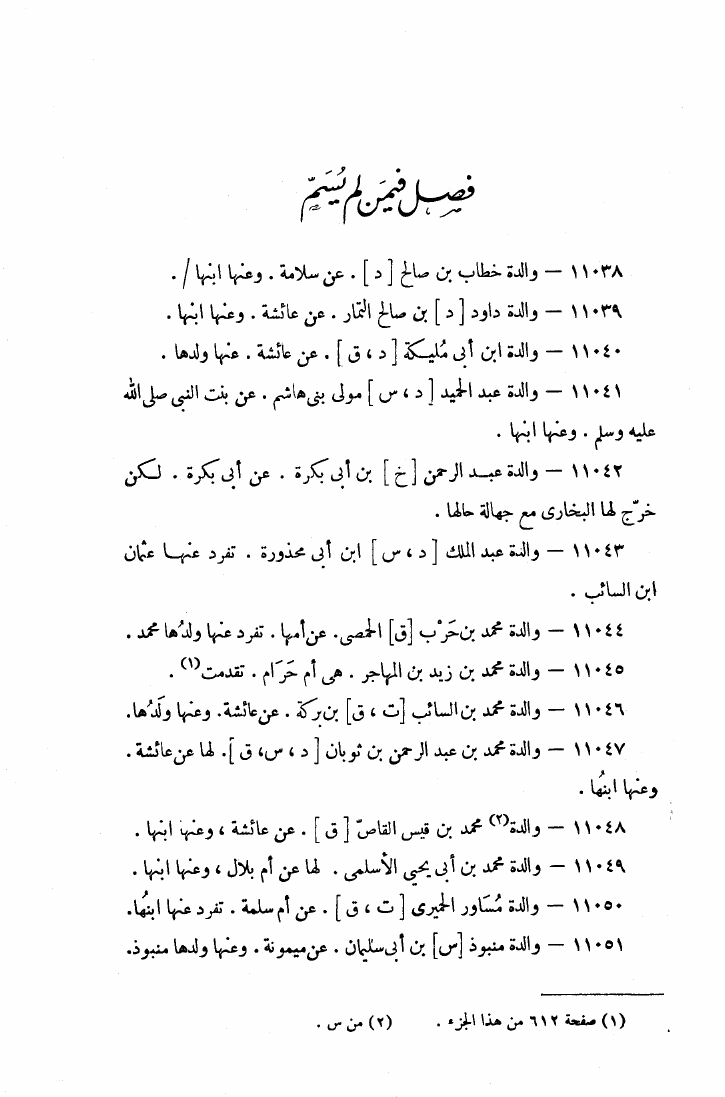 فصل فيمَن لم يُسَمَّ
١١٠٣٨ — والدة خطاب بن صالح [ د ] . عن سلامة . وعنها ابنها / .
١١٠٣٩ — والدة داود [ د ] بن صالح التمار . عن عائشة . وعنها ابنها .
١١٠٤٠ — والدة ابن أبى مُليكة [ د ، ق ] . عن عائشة . عنها ولدها .
١١٠٤١ — والدة عبد الحميد [ د ، س ] مولى بنى هاشم . عن بنت النبي صلى الله
عليه وسلم . وعنها ابنها .
١١٠٤٢ — والدة عبد الرحمن [ خ ] بن أبى بكرة . عن أبى بكرة . لكن
خرّج لها البخارى مع جهالة حالها .
١١٠٤٣ — والدة عبد الملك [ د ، س ] ابن أبى محذورة . تفرد عنها عثمان
ابن السائب .
١١٠٤٤ — والدة محمد بن حَرْب [ق] الحمصى. عن أمها . تفرد عنها ولدُها محمد .
١١٠٤٥ — والدة محمد بن زيد بن المهاجر . هى أم حَرَام . تقدمت(١) .
١١٠٤٦ — والدة محمد بن السائب [ت ، ق] بن بركة . عن عائشة. وعنها ولَدُها.
١١٠٤٧ — والدة محمد بن عبد الرحمن بن ثوبان [ د ، س، ق ]. لها عن عائشة .
وعنها ابنُها .
١١٠٤٨ — والدة(٢) محمد بن قيس القاصّ [ ق ] . عن عائشة ، وعنها ابنها .
١١٠٤٩ — والدة محمد بن أبى يحيى الأسلمى . لها عن أم بلال ، وعنها ابنها .
١١٠٥٠ — والدة مُسَاور الحميرى [ ت ، ق ] . عن أم سلمة . تفرد عنها ابنُها.
١١٠٥١ — والدة منبوذ [س] بن أبى سليمان . عن ميمونة . وعنها ولدها منبوذ.
(١) صفحة ٦١٢ من هذا الجزء . (٢) من س .